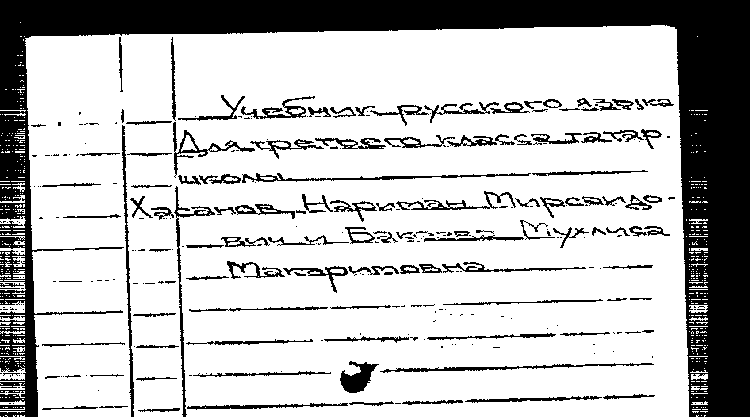 Учебник русского языка
Для третьего класса татар.
школы
Хасанов, Нариман Мирсаидо-
вич и Бакеева Мухлиса
Макаримовна